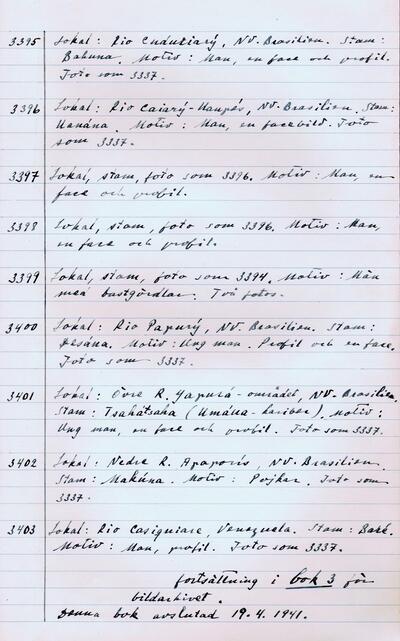 3395 Lokal: Rio Cuduiarý, NV. Brasilien. Stam:
Bahuna. Motiv: Man, en face och profil.
Foto som 3337.
3396 Lokal: Rio Caiarý-Uaupés, NV. Brasilien. Stam:
Uanána. Motiv: Man, en facebild. Foto
som 3337.
3397 Lokal, stam, foto som 3396. Motiv: Man, en
face och profil.
3398 Lokal, stam, foto som 3396. Motiv: Man,
en face och profil.
3399 Lokal, stam, foto som 3394. Motiv: Män
med bastgördlar. Två fotos.
3400 Lokal: Rio Papurý, NV. Brasilien. Stam:
Desána. Motiv: Ung man. Profil och en face.
Foto som 3337.
3401 Lokal: Övre R. Yapurá-området, NV. Brasilien.
Stam: Tsahátsaha (Umáua-kariber), Motiv:
Ung man, en face och profil. Foto som 3337.
3402 Lokal: Nedre R. Apaporis, NV. Brasilien.
Stam: Makúna. Motiv: Pojkar. Foto som
3337.
3403 Lokal: Rio Casiquiare, Venezuela. Stam: Baré.
Motiv: Man, profil. Foto som 3337.
fortsättning i bok 3 för
bildarkivet.
Denna bok avslutad 19.4.1941.